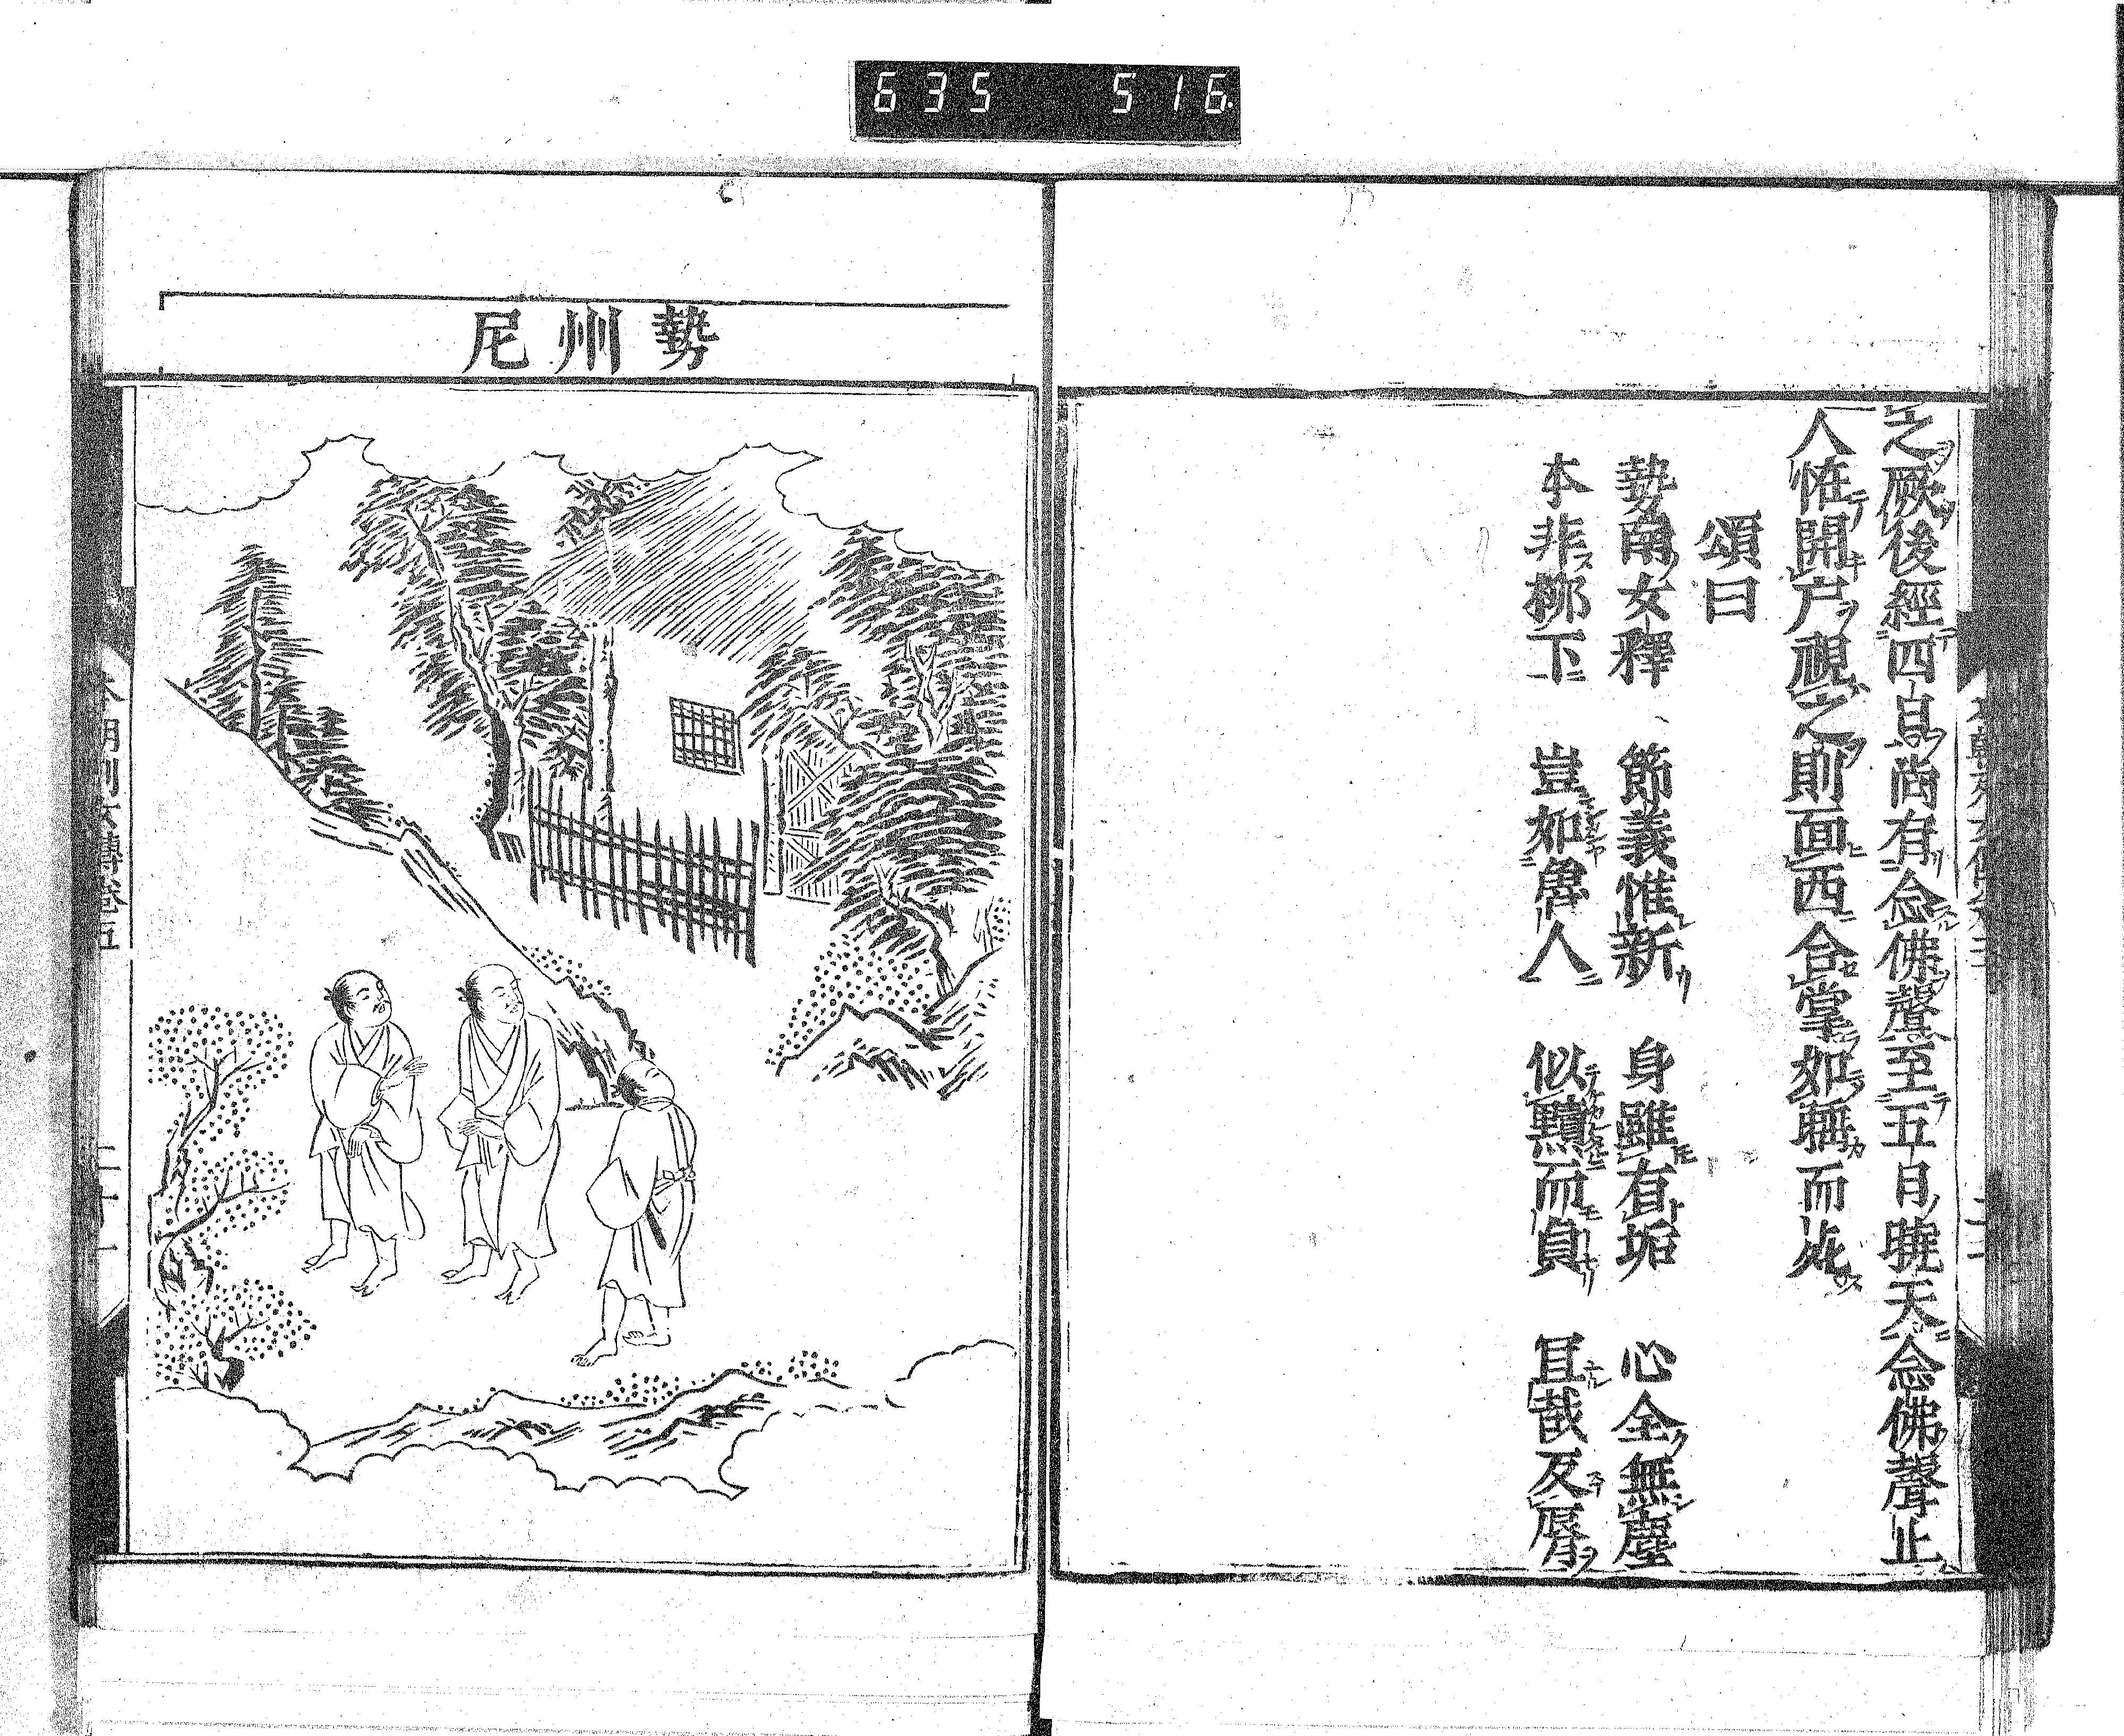 635 516
之厥後經四日尚有念佛聲至五日曉天念佛聲止
人恠開戸視之則面西合掌如睡而化
頌曰
勢南女釋 節義惟新 身雖有垢 心全無塵
本非柳下 豈如魯人 似黷而貞 耳哉及辱
勢州尼
本朝列女傳卷五